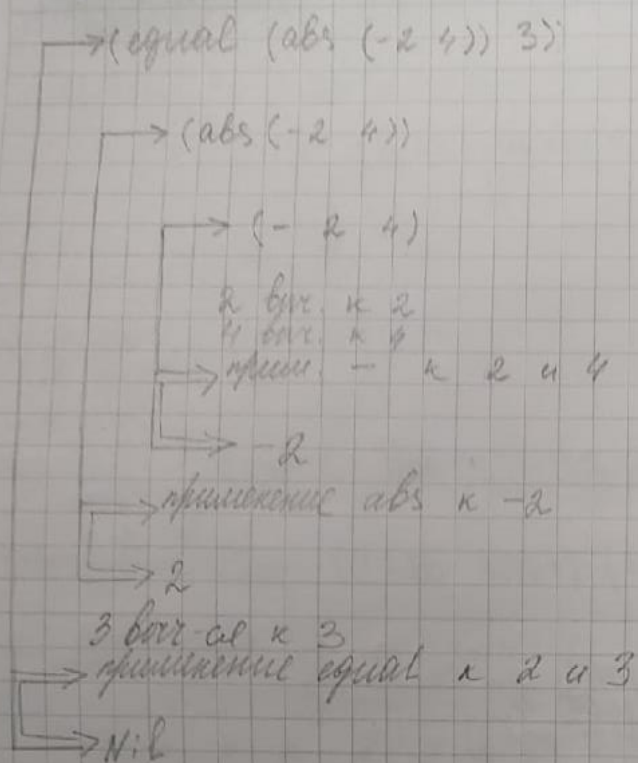 (equal (abs (-2 4)) 3)
(abs (-2 4))
(- 2 4)
2 выч. к 2
4 выч. к 4
прим. - к 2 и 4
-2
применение abs к -2
2
3 выч-ся к 3
применение equal к 2 и 3
Nil